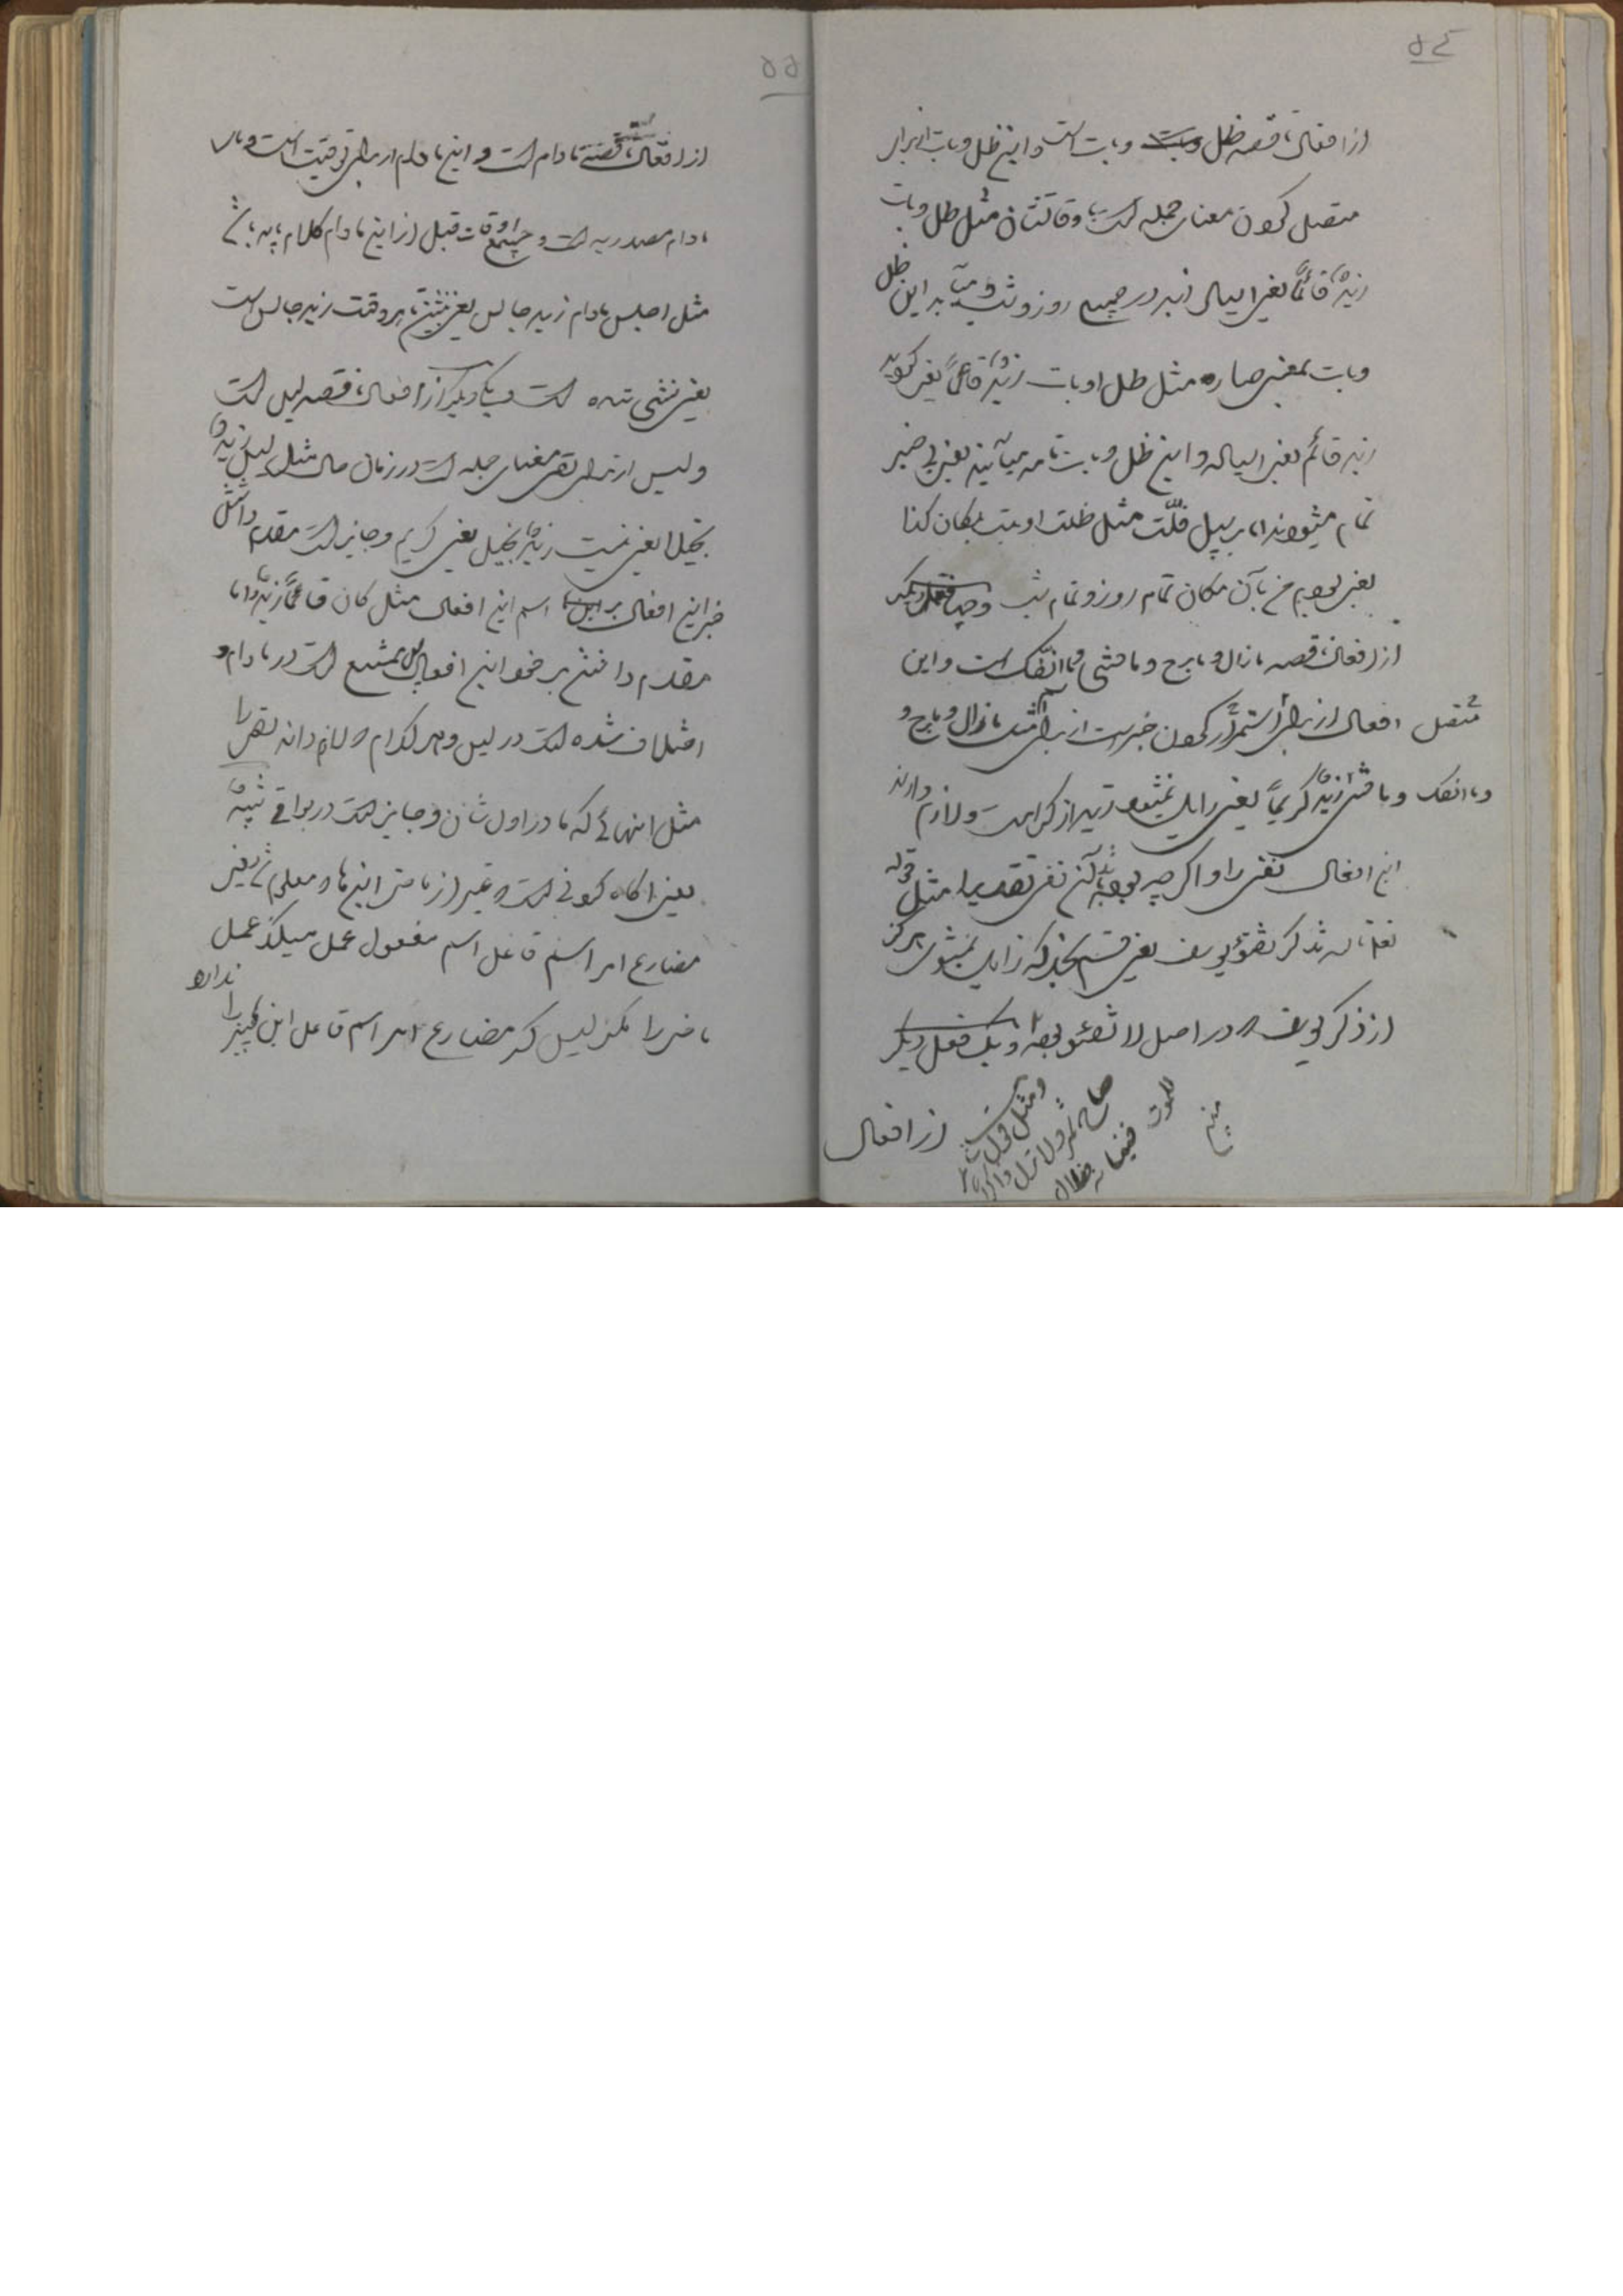 ۵۴
از افعال ناقصه ظل و بات است و این ظل و بات از برای
متصل کردن معنای جمله است باوقاتشان مثل ظل و بات
زیدٌ قائماً یعنی ایستاد زید در جمیع روز و شب و میآید این ظل
و بات بمعنی صار مثل ظل او بات زیدٌ قائماً یعنی گردید
زید قائم یعنی ایستاده و این ظل و بات تامه میآیند یعنی بی خبر
تمام میشوند اما بر سبیل قلّت مثل ظللت او بت بمکان کذا
یعنی بودم من بآن مکان تمام روز و تمام شب
از افعال ناقصه مازال و مابرح و مافتئی و ماانفک است و این
افعال از برای استمرار کردن خبر است از برای اسم مثل مازال و مابرح و
و ماانفک و مافتئی زیدٌ کریماً یعنی زایل نمیشود زید از کرامت و لازم دارند
این افعال نفی را و اگر چه بوده باشد آن نفی تقدیرا مثل قوله
تعالی تالله تفتؤ تذکر یوسف یعنی قسم بخدا که زایل نمیشوی هرگز
از ذکر یوسف در اصل لا تفتئو بوده و یک فعل دیگر
از افعال
و مثل قول شاعر
صاح شمر ولا تزل ذاکر
الموت فنسیانه ضلال
مبین
۵۵
از افعال ناقصه مادام است و این مادام از برای توقیت است و مای
مادام مصدریه است و جمیع اوقات قبل از این مادام کلام باید باشد
مثل اجلس مادام زید جالس یعنی بنشین هر وقت زید جالس است
یعنی نشسته است و یکی دیگر از افعال ناقصه لیس است
و لیس از برای نفی معنای جمله است در زمان حال مثل لیس زیدٌ
بخیلا یعنی نیست زیدٌ بخیل یعنی کریم و جایز است مقدم داشتن
خبر این افعال بر اسم این افعال مثل کان قائماً زیدٌ و اما
مقدم داشتن بر خود این افعال ممتنع است در مادام و
اختلاف شده است در لیس و هر کدام لازم دارند نفی را
مثل اینهائی که ما در اول شان و جایز است در بواقی
یعنی گاه گونی است و غیر از ماضی اینها و معلوم یعنی
مضارع امر اسم فاعل اسم مفعول عمل میکند عمل
ماضی را مگر لیس که مضارع امر اسم فاعل این چیزها را
ندارد